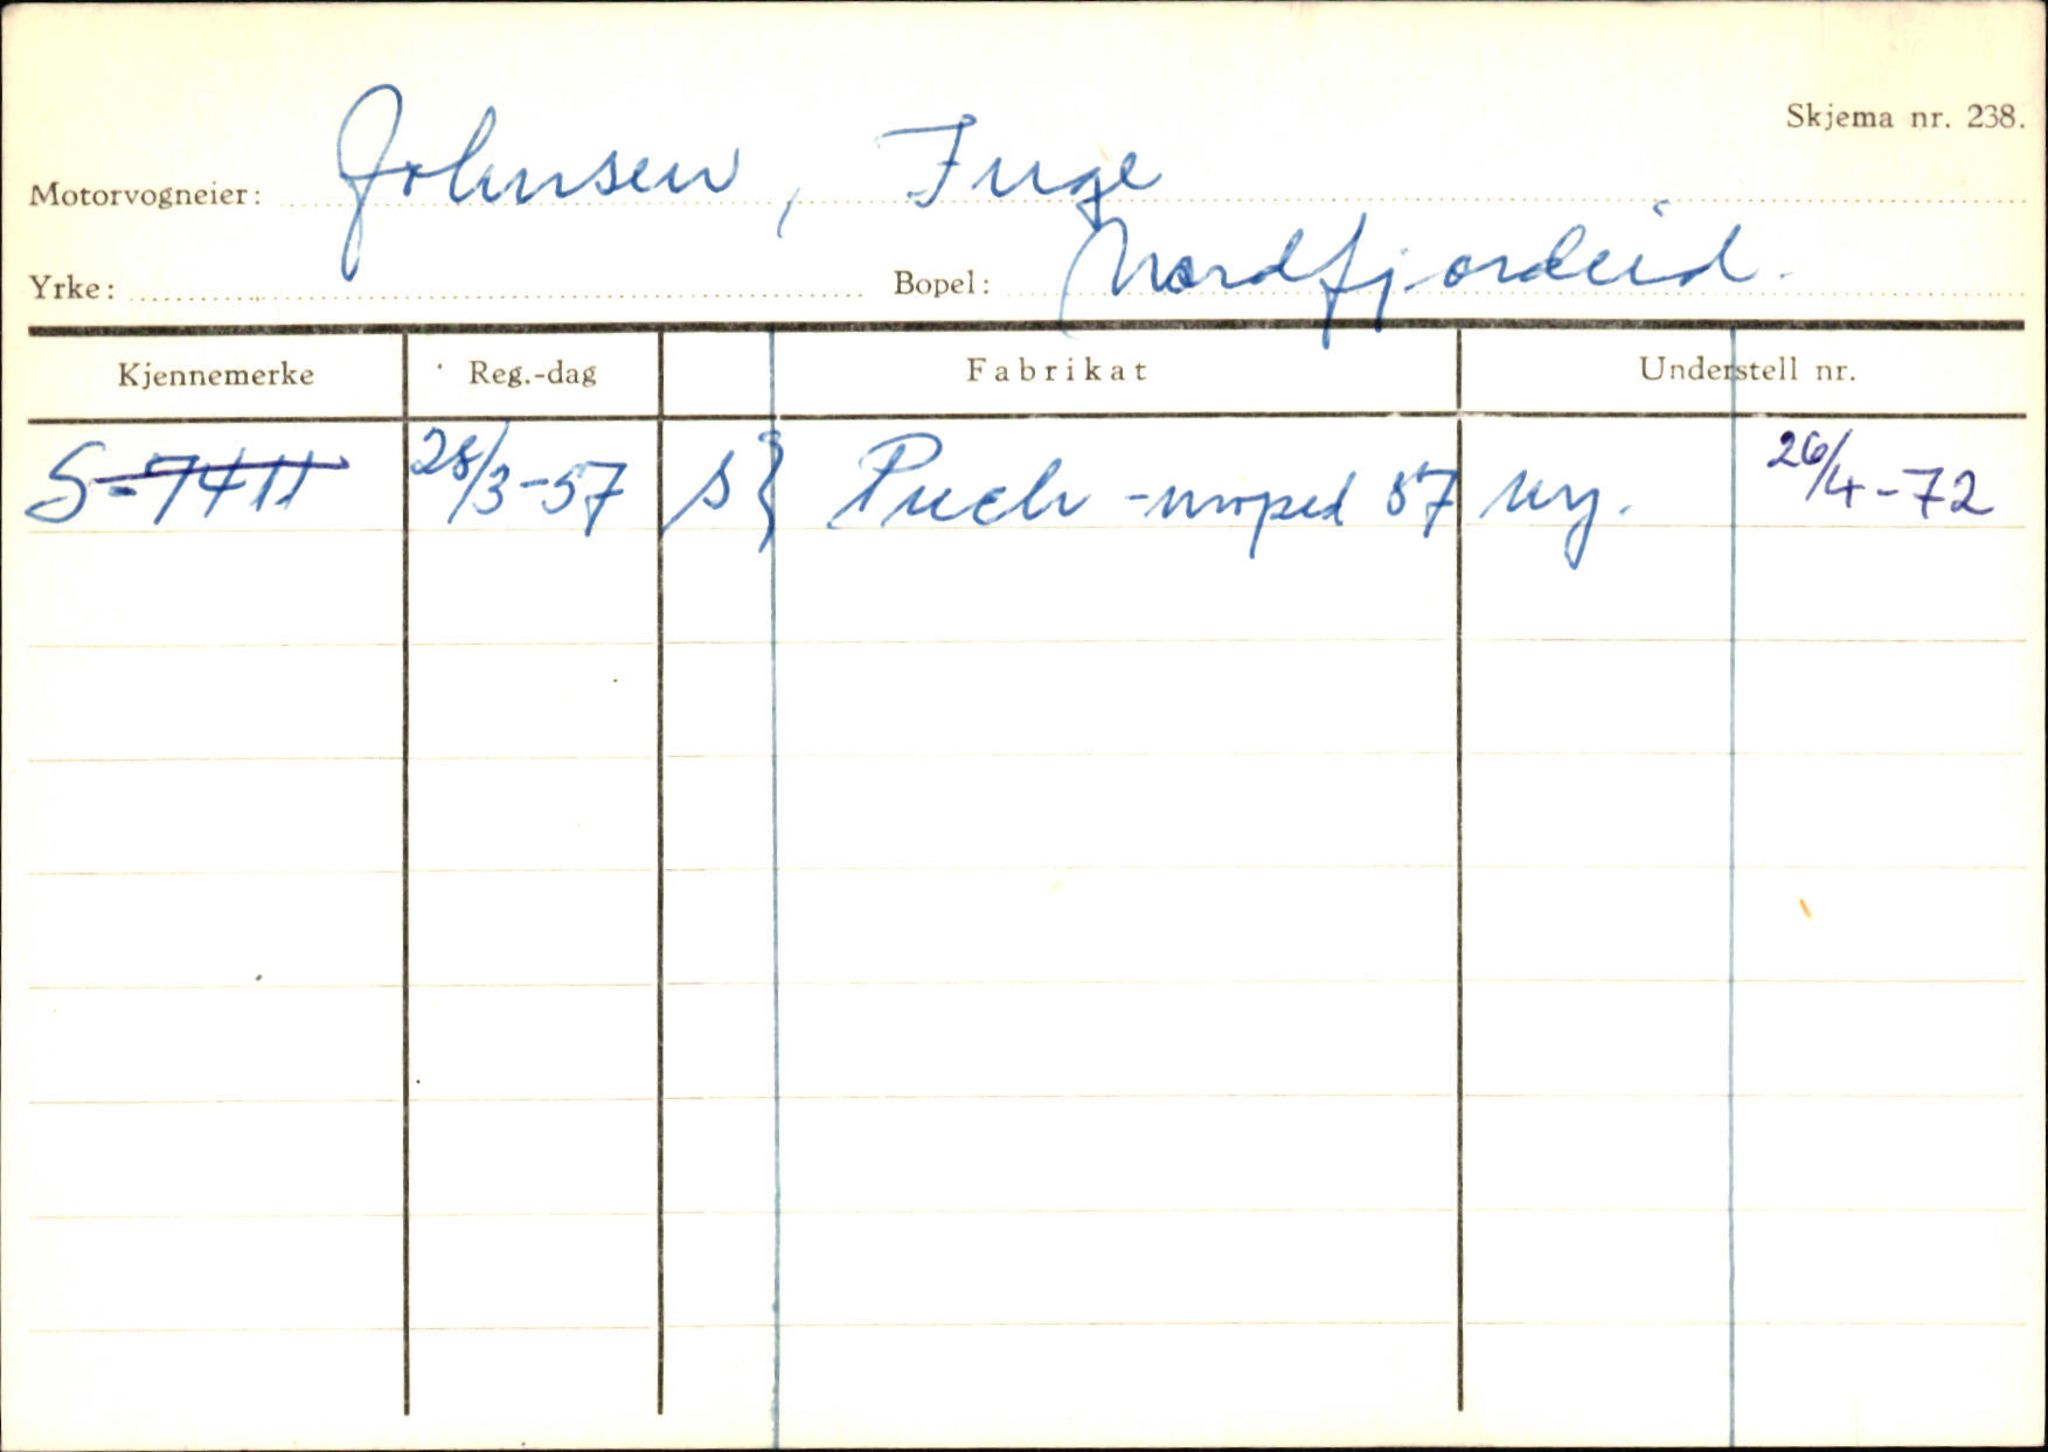 Skjema nr. 238.
Motorvogneier: Johnsen, Inge
Yrke: Bopel: Nordfjordeid.
Kjennemerke Reg.-dag Fabrikat Understell nr.
S-7411 28/3-57 S} Puch -moped 57 ny. 26/4-72